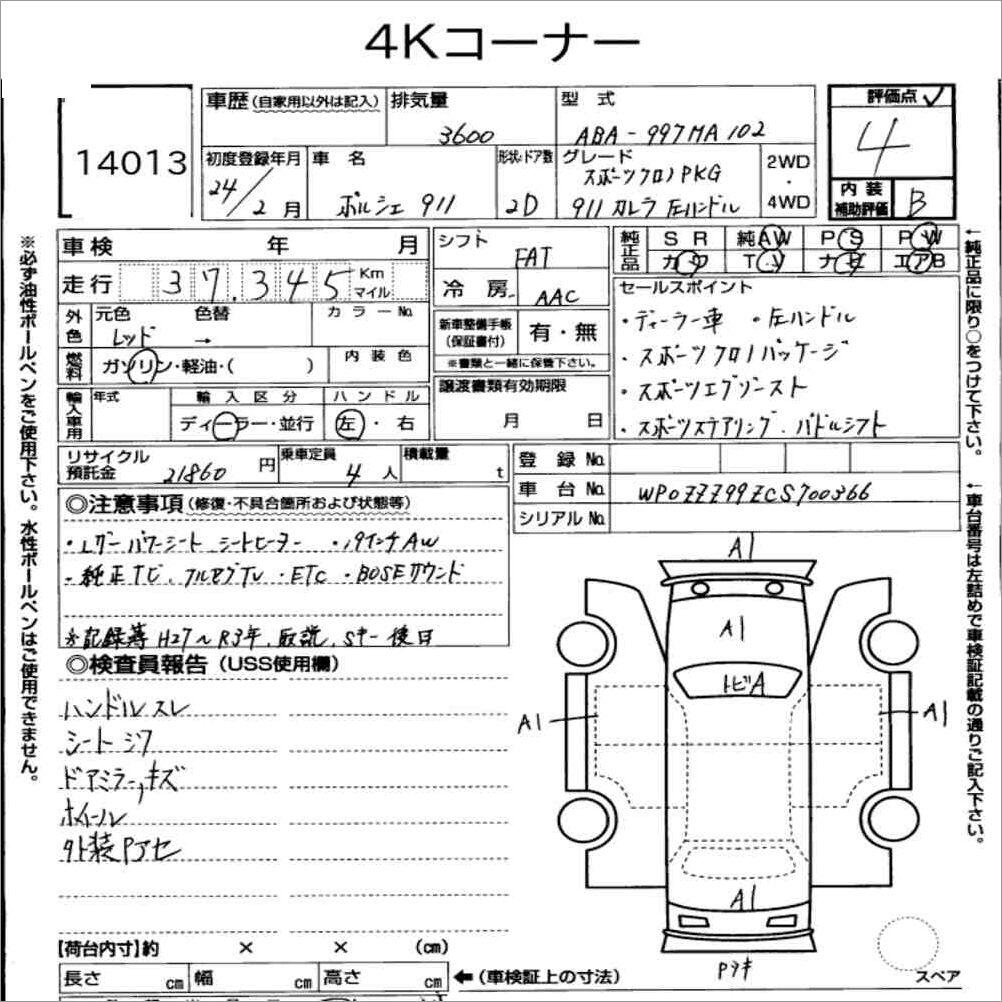 4Kコーナー
14013
車歴 (自家用以外は記入) 排気量 3600 型式 ABA-997MA102
評価点 4
内装補助評価 B
初度登録年月 24/2月
車名 ポルシェ 911
形状・ドア数 2D
グレード スポーツクロノPKG
911 カレラ 左ハンドル
2WD・4WD
車検 年 月
走行 37,345 Km マイル
シフト FAT
冷房 AAC
純正品 SR 純AW PS PW
カワ TV ナビ エアB
外色 元色 レッド 色替 → カラーNo.
燃料 ガソリン・軽油・( ) 内装色
新車整備手帳(保証書付) 有・無
※書類と一緒に保管下さい。
輸入車用 年式 輸入区分 ハンドル
ディーラー・並行 左・右
譲渡書類有効期限
月 日
セールスポイント
・ディーラー車 ・左ハンドル
・スポーツクロノパッケージ
・スポーツエグゾースト
・スポーツステアリング、パドルシフト
リサイクル預託金 21860円 乗車定員 4人 積載量 t
登録No.
車台No. WP0ZZZ99ZCS700366
シリアルNo.
◎注意事項 (修復・不具合箇所および状態等)
・Lザーパワーシート シートヒーター ・19インチAW
・純正TV、フルセグTV ・ETC ・BOSEサウンド
※記録簿 H27〜R3年、取説、Sキー後日
◎検査員報告 (USS使用欄)
ハンドルスレ
シートシワ
ドアミラー,キズ
ホイール
外装Pアセ
A1
A1
トビA
A1
A1
A1
Pヌキ
スペア
【荷台内寸】約 × × (cm)
長さ cm 幅 cm 高さ cm ←(車検証上の寸法)
※必ず油性ボールペンをご使用下さい。水性ボールペンはご使用できません。
←純正品に限り○をつけて下さい。
←車台番号は左詰めで車検証記載の通りご記入下さい。